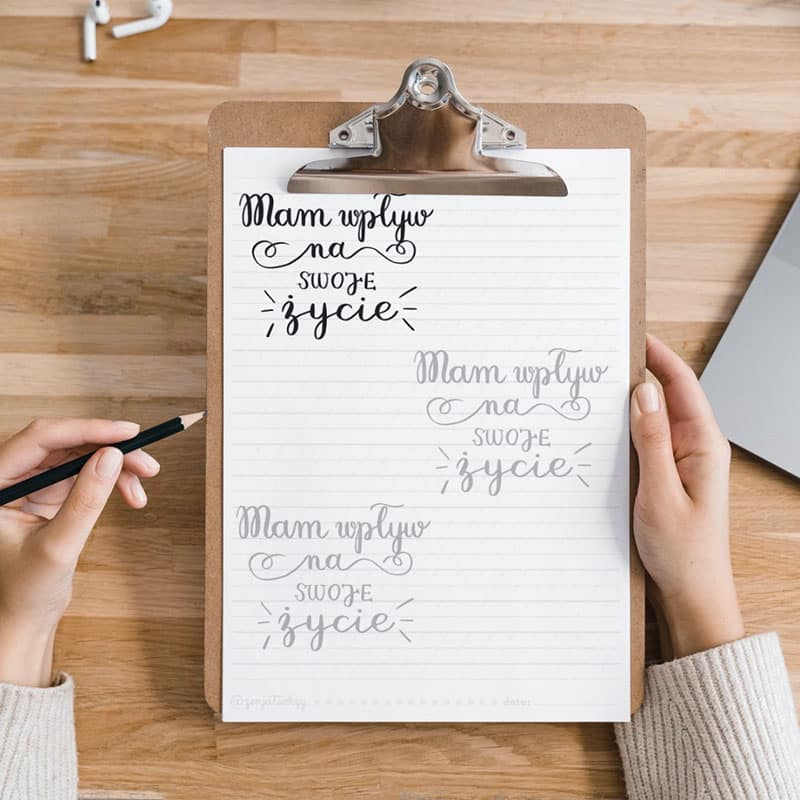 Mam wpływ
na
SWOJE
życie
Mam wpływ
na
SWOJE
życie
Mam wpływ
na
SWOJE
życie